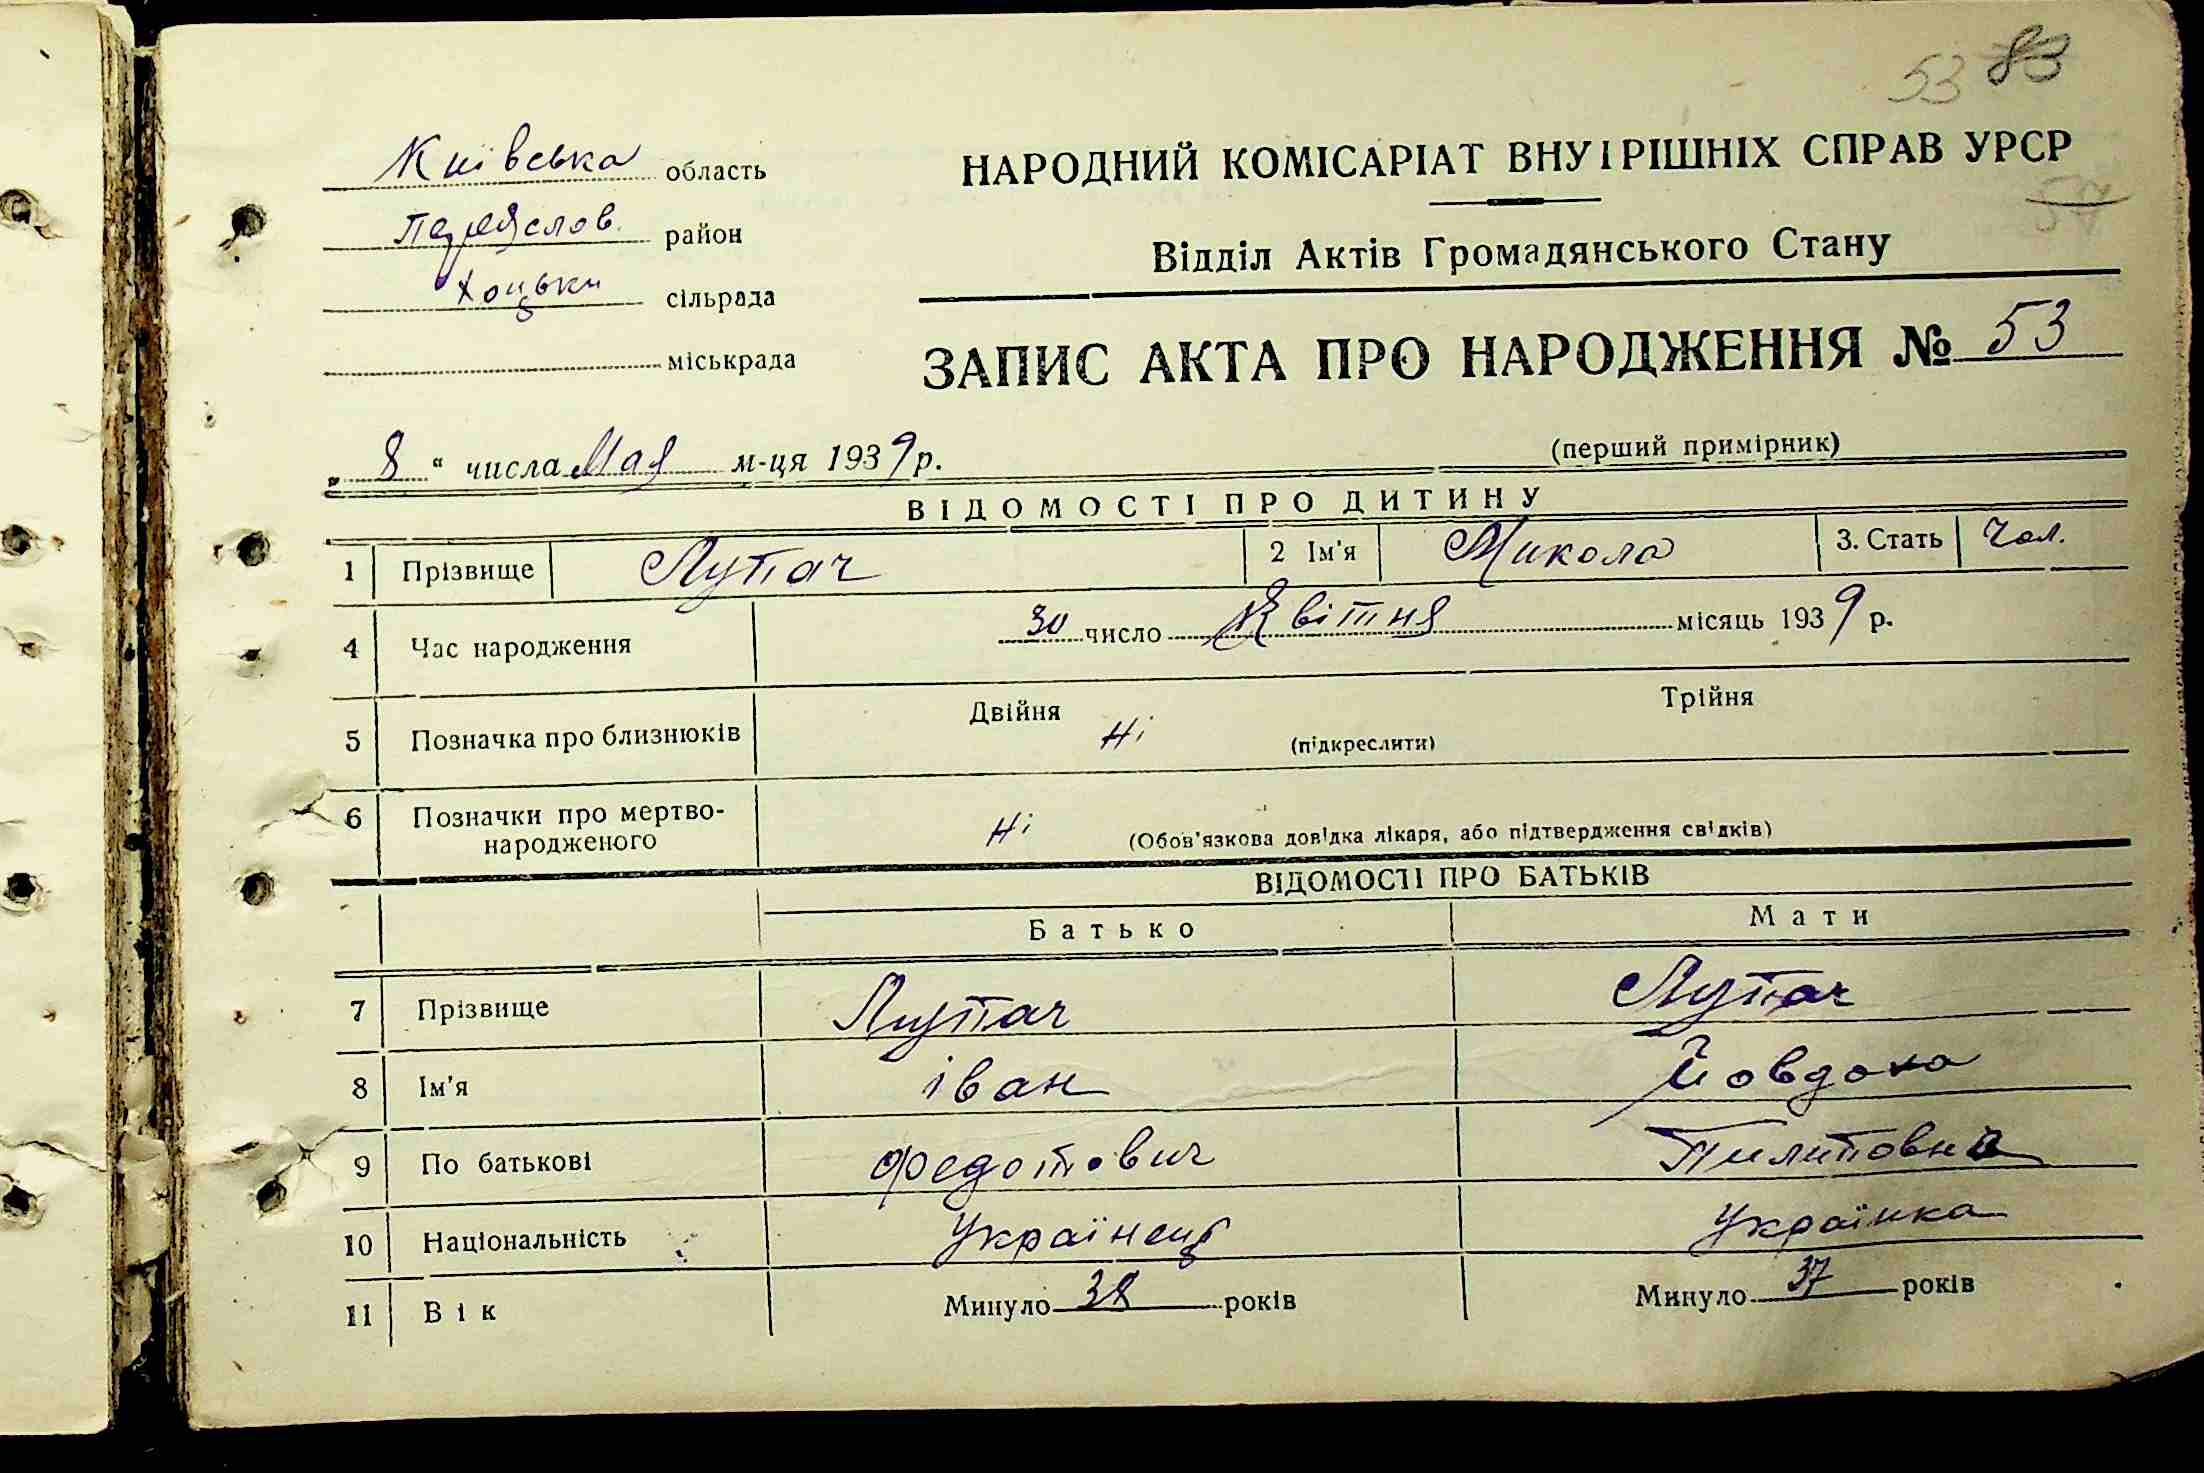 53 83
Київська область
Переяслов. район
Хоцьки сільрада
міськрада
НАРОДНИЙ КОМІСАРІАТ ВНУТРІШНІХ СПРАВ УРСР
57
Відділ Актів Громадянського Стану
ЗАПИС АКТА ПРО НАРОДЖЕННЯ № 53
(перший примірник)
„ 8 “ числа Мая м-ця 1939 р.
ВІДОМОСТІ ПРО ДИТИНУ
1 Прізвище Лупач 2 Ім'я Микола 3. Стать Чол.
4 Час народження 30 число Квітня місяць 1939 р.
5 Позначка про близнюків Двійня Ні (підкреслити) Трійня
6 Позначки про мертво-
народженого Ні (Обов'язкова довідка лікаря, або підтвердження свідків)
ВІДОМОСТІ ПРО БАТЬКІВ
Батько Мати
7 Прізвище Лупач Лупач
8 Ім'я іван Йовдоха
9 По батькові Федотович Пилиповна
10 Національність Українець Українка
11 Вік Минуло 38 років Минуло 37 років